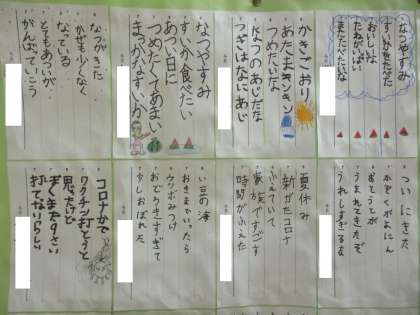 なつやすみ
すいかをたべた
おいしいな
たねがいっぱい
またたべたいな
かきごおり
あたまキンキン
つめたいな
なつのあじだな
つぎはなにあじ
なつやすみ
すいか食べたい
あつい日に
つめたくてあまい
まっかなすいか
なつがきた
かぜも少なく
なっている
とてもあついが
がんばっていこう
ついにきた
かぞくがよにん
おとうとが
うまれてきたぞ
うれしすぎるな
夏休み
新がたコロナ
ふえていて
家族ですごす
時間がふえた
い豆の海
おきまでいったら
ウツボみつけ
おどろきすぎて
少しおぼれた
コロナかで
ワクチン打とうと
思ったけど
ぼくまだ9さい
打てないらしい